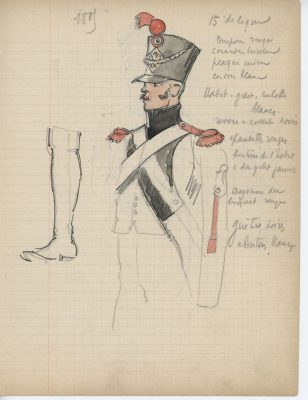 1809
15e de ligne
Pompon rouge
cocarde tricolore
plaque cuivre
cordon blanc
Habit - gilet, culotte
blancs
revers & collet noirs
épaulettes rouges
boutons de l'habit
& du gilet jaunes
dragonne du
briquet rouge
guêtres noires
à boutons blancs